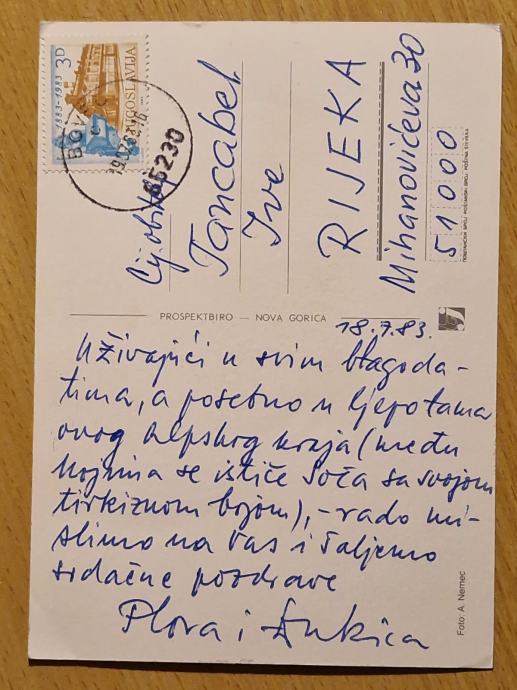 1883-1983
3D
JUGOSLAVIJA
BOVEC
65230
Cij. obitelj
Tancabel
Ive
RIJEKA
Mihanovićeva 30
51000
PROSPEKTBIRO — NOVA GORICA
18.7.83.
Uživajući u svim blagoda-
tima, a posebno u ljepotama
ovog alpskog kraja (među
kojima se ističe Soča sa svojom
tirkiznom bojom), - rado mi-
slimo na Vas i šaljemo
srdačne pozdrave
Flora i Dukica
Foto: A. Nemec